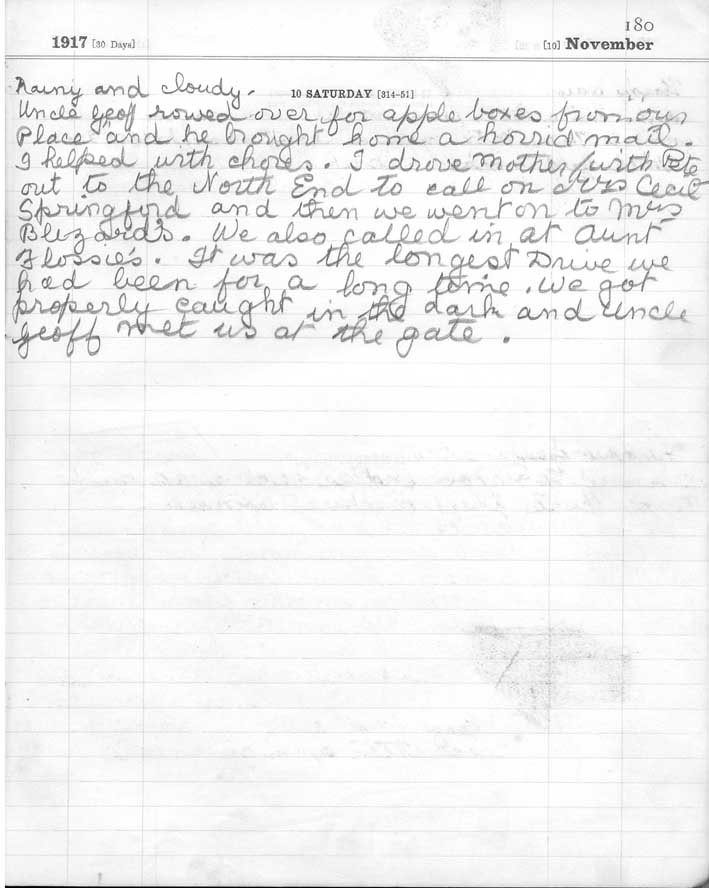 180
1917 [30 Days] [10] November
Rainy and cloudy.
10 SATURDAY [314-51]
Uncle Geoff rowed over for apple boxes from our
Place and he brought home a horrid mail.
I helped with chores. I drove Mother with Pete
out to the North End to call on Mrs Cecil
Springford and then we went on to Mrs
Blizards. We also called in at Aunt
Flossies. It was the longest Drive we
had been for a long time. We got
properly caught in the dark and Uncle
Geoff met us at the gate.